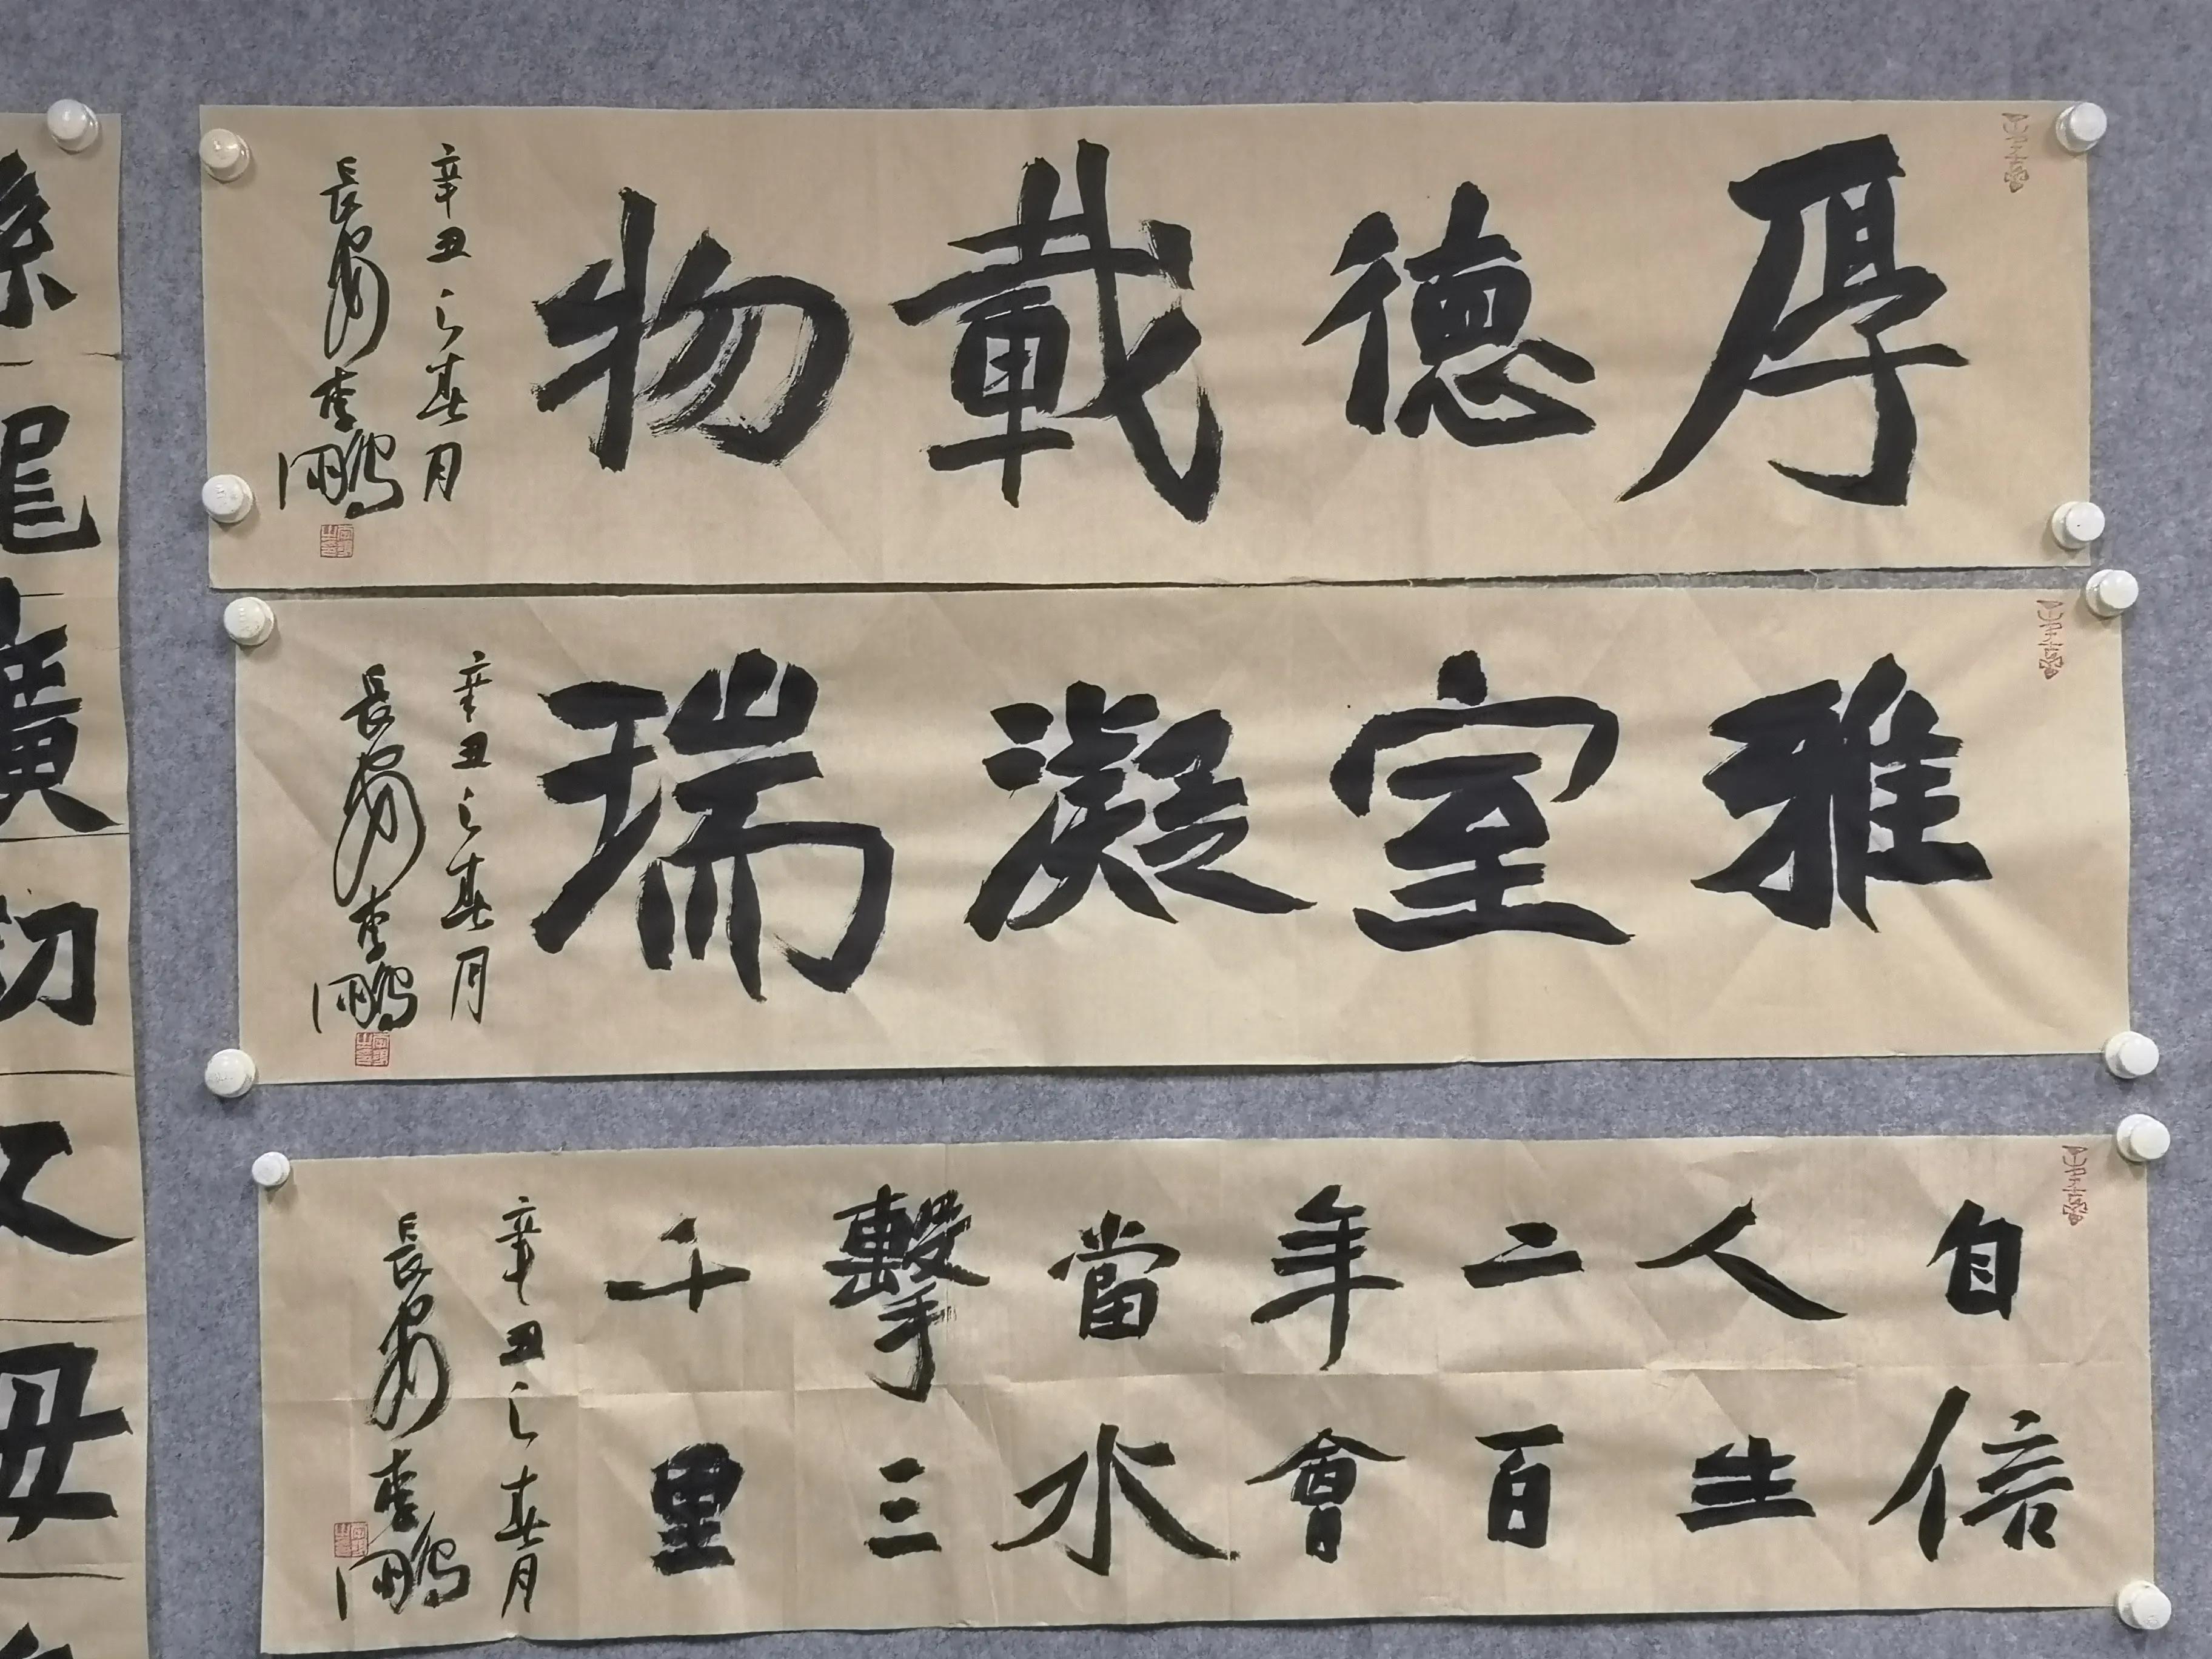 厚德載物
辛丑之春月
長安李鵬
雅室凝瑞
辛丑之春月
長安李鵬
自信
人生
二百
年會
當水
擊三
千里
辛丑之春月
長安李鵬